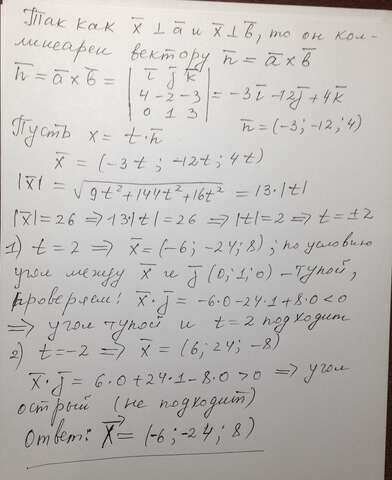 Так как x̅ ⊥ a̅ и x̅ ⊥ b̅, то он кол-
линеарен вектору n̅ = a̅ × b̅
n̅ = a̅ × b̅ = | i̅ j̅ k̅ |
| 4 -2 -3 | = -3i̅ -12j̅ + 4k̅
| 0 1 3 |
n̅ = (-3; -12; 4)
Пусть x = t · n̅
x̅ = (-3t; -12t; 4t)
|x̅| = √(9t² + 144t² + 16t²) = 13·|t|
|x̅| = 26 ⇒ 13|t| = 26 ⇒ |t| = 2 ⇒ t = ±2
1) t = 2 ⇒ x̅ = (-6; -24; 8); по условию
угол между x̅ и j̅ (0; 1; 0) – тупой,
проверяем: x̅ · j̅ = -6·0 - 24·1 + 8·0 < 0
⇒ угол тупой и t = 2 подходит
2) t = -2 ⇒ x̅ = (6; 24; -8)
x̅ · j̅ = 6·0 + 24·1 - 8·0 > 0 ⇒ угол
острый (не подходит)
Ответ: x⃗ = (-6; -24; 8)